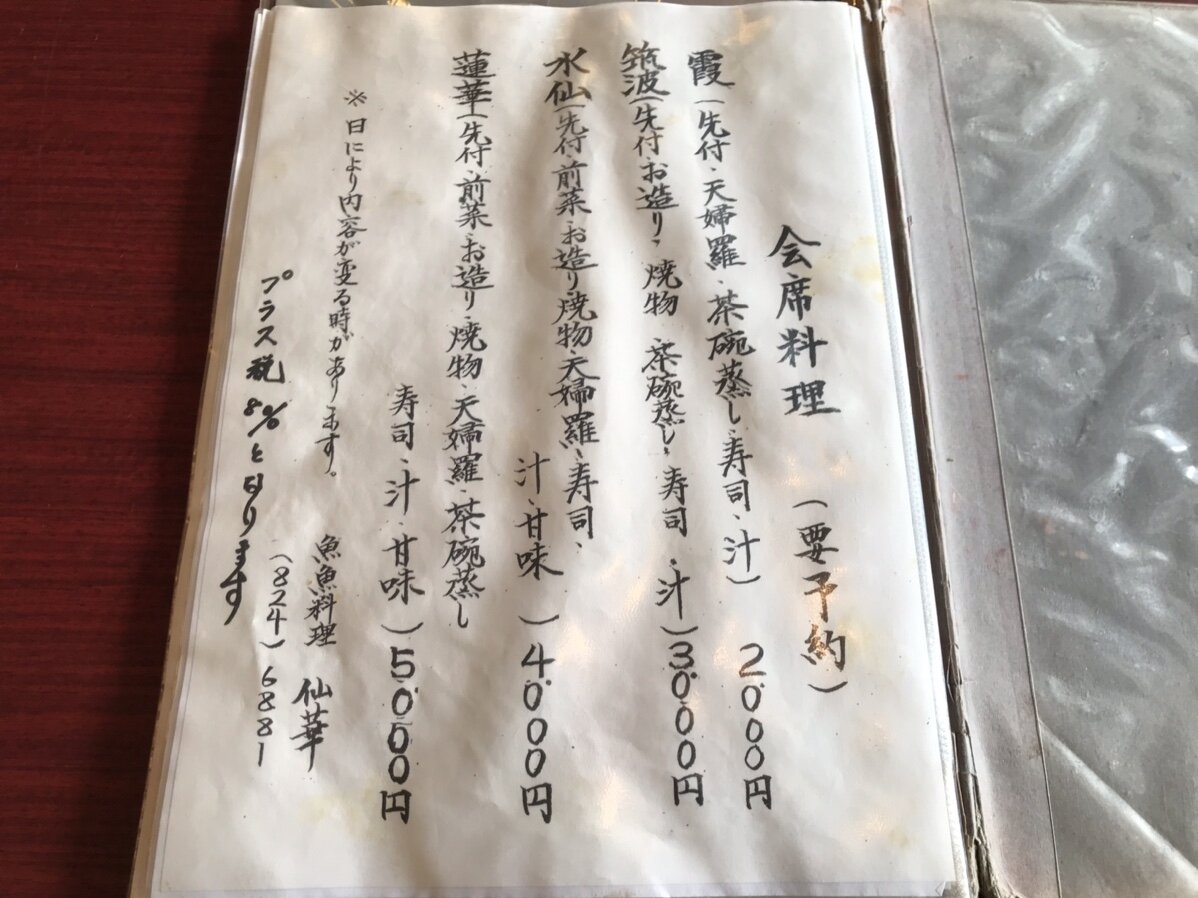 会席料理 (要予約)
霞(先付、天婦羅、茶碗蒸し、寿司、汁) 2000円
筑波(先付、お造り、焼物、茶碗蒸し、寿司、汁) 3000円
水仙(先付、前菜、お造り、焼物、天婦羅、寿司、
汁、甘味) 4000円
蓮華(先付、前菜、お造り、焼物、天婦羅、茶碗蒸し
寿司、汁、甘味) 5000円
※日により内容が変る時があります。
魚魚料理 仙華
プラス税8%となります
(824)6881